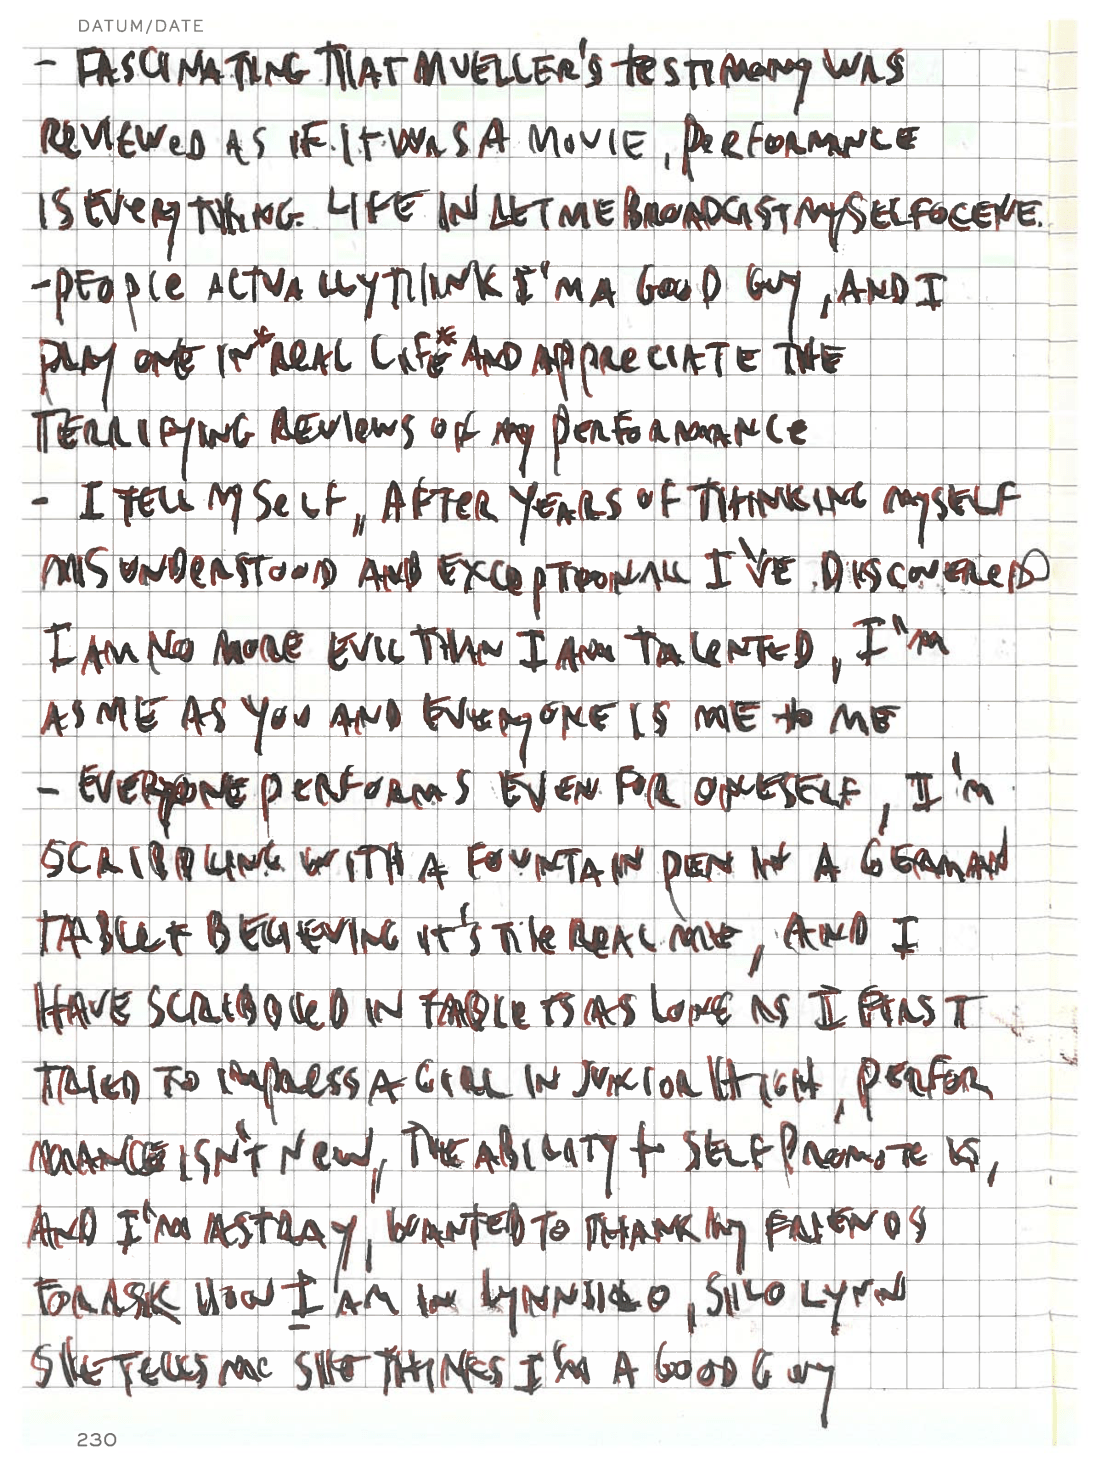 DATUM/DATE
- FASCINATING THAT MUELLER'S TESTIMONY WAS
REVIEWED AS IF IT WAS A MOVIE, PERFORMANCE
IS EVERYTHING. LIFE IN LETMEBROADCASTMYSELFOCENE.
- PEOPLE ACTUALLY THINK I'M A GOOD GUY, AND I
PLAY ONE IN *REAL LIFE* AND APPRECIATE THE
TERRIFYING REVIEWS OF MY PERFORMANCE
- I TELL MYSELF, AFTER YEARS OF THINKING MYSELF
MISUNDERSTOOD AND EXCEPTIONAL I'VE DISCOVERED
I AM NO MORE EVIL THAN I AM TALENTED, I'M
AS ME AS YOU AND EVERYONE IS ME TO ME
- EVERYONE PERFORMS EVEN FOR ONESELF, I'M
SCRIBBLING WITH A FOUNTAIN PEN IN A GERMAN
TABLET BELIEVING IT'S THE REAL ME, AND I
HAVE SCRIBBLED IN TABLETS AS LONG AS I FIRST
TRIED TO IMPRESS A GIRL IN JUNIOR HIGH, PERFOR
MANCE ISN'T NEW, THE ABILITY + SELF PROMOTE IS,
AND I'M ASTRAY, WANTED TO THANK MY FRIENDS
FOR ASK HOW I AM IN
SHE TELLS ME SHE THINKS I'M A GOOD GUY
230